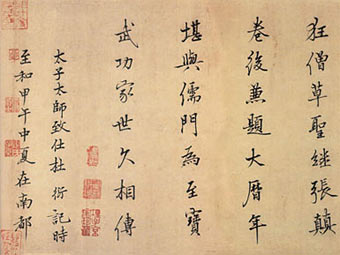 狂僧草聖継張顛
卷後兼題大暦年
堪與儒門為至寶
武功家世久相傳
太子太師致仕杜衍記時
至和甲午中夏在南都